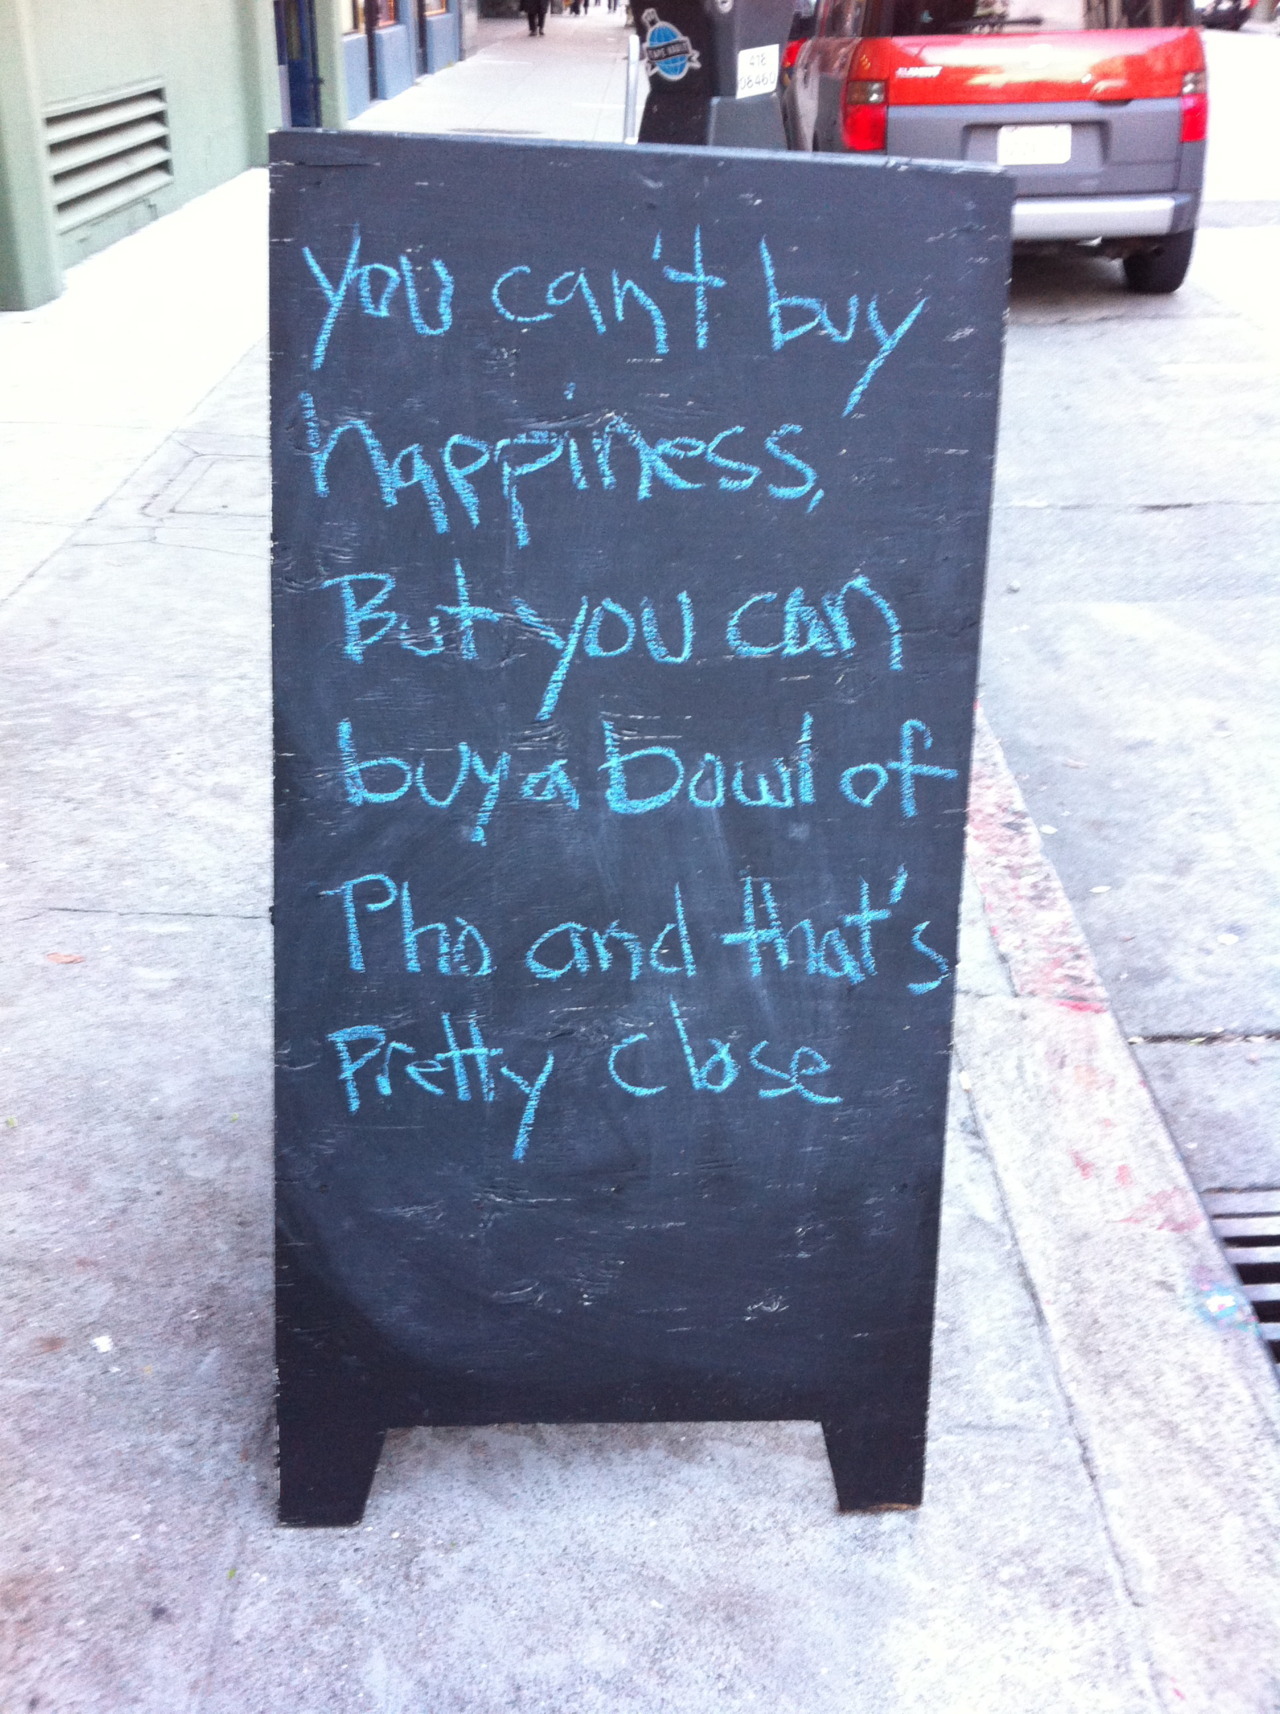 You can't buy
happiness,
But you can
buy a bowl of
Pho and that's
Pretty close
ELEMENT